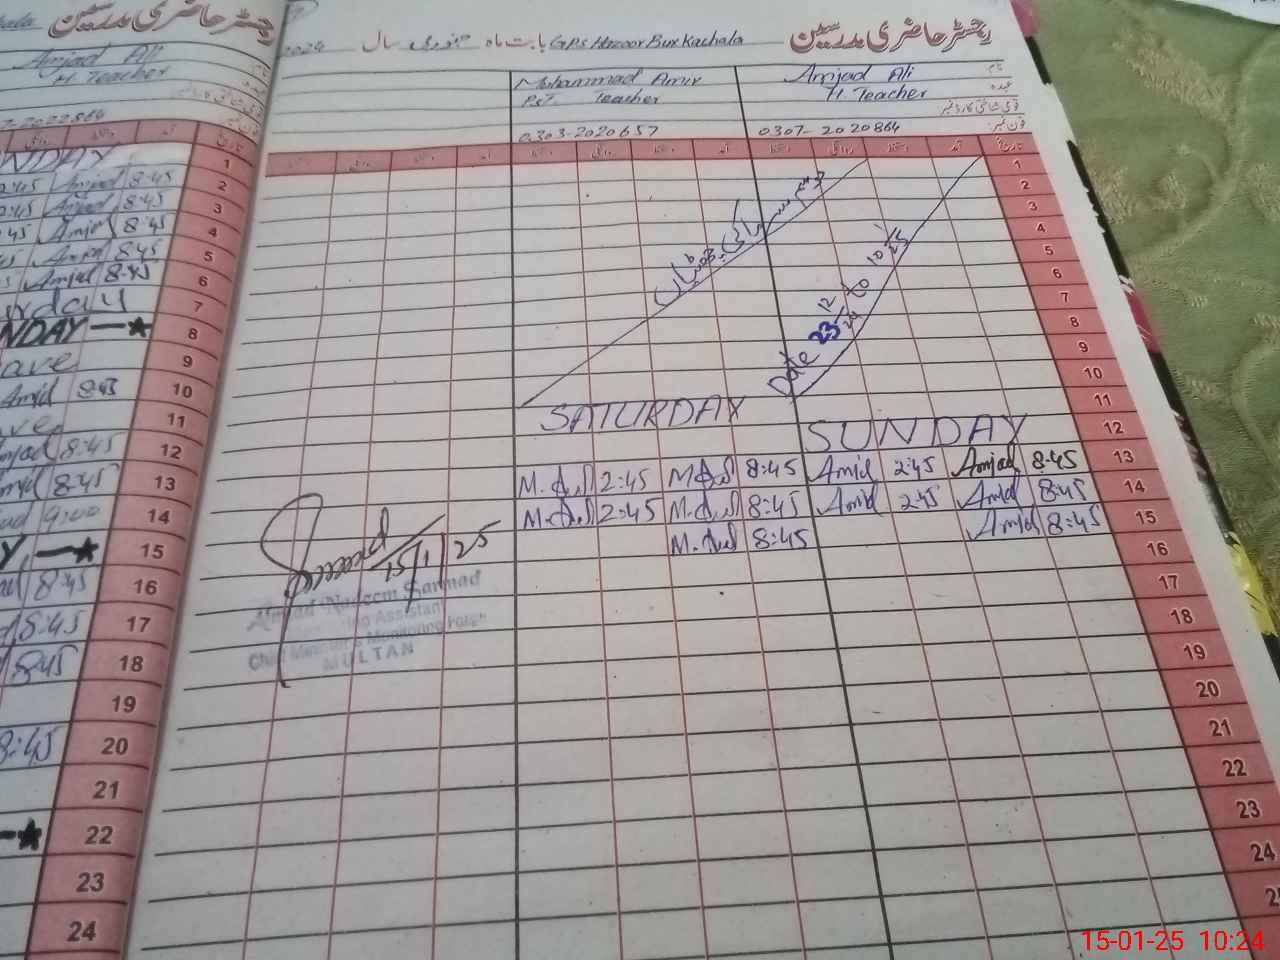 رجسٹر حاضری مدرسین
Amjad Ali
H. Teacher
2022864
تاریخ
NDAY
2:45 Amjad 8:45 1
2:45 Amjad 8:45 2
:45 Amjd 8:45 3
:45 Amjd 8:45 4
Amjad 8:45 5
6
7
NDAY 8
ave 9
Amjd 8:45 10
11
mjad 8:45 12
mjd 8:45 13
9:00 14
Y 15
8:45 16
8:45 17
8:45 18
19
8:45 20
21
22
23
24
رجسٹر حاضری مدرسین GPS Hazoor Bux Kachala بابت ماہ جنوری سال 2024
نام Amjad Ali Mohammad Amir
عہدہ H. Teacher PST. Teacher
قومی شناختی کارڈ نمبر
فون نمبر: 0307-2020864 0303-2020657
تاریخ آمد دستخط روانگی دستخط آمد دستخط روانگی دستخط آمد دستخط روانگی دستخط
1
2
3
4
5
6
7
8
9
10
11
موسم سرما کی چھٹیاں
Date 23-12-24 to 10-1-25
SATURDAY
SUNDAY 12
M. 2:45 M. 8:45 Amjd 2:45 Amjad 8:45 13
M. 2:45 M. 8:45 Amjd 2:45 Amjd 8:45 14
M. 8:45 Amjd 8:45 15
16
17
18
19
20
21
22
23
24
25
15/1/25
Amjad Nadeem Sarmad
Monitoring Assistant
Chief Minister's Monitoring Force
MULTAN
15-01-25 10:24